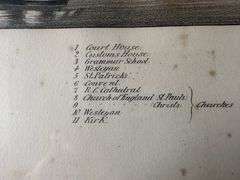 1 Court House.
2 Customs House.
3 Grammar School
4 Wesleyan
5 St. Patricks
6 Convent.
7 R.C. Cathedral
8 Church of England St. Pauls
9 Christs Churches
10 Wesleyan
11 Kirk.